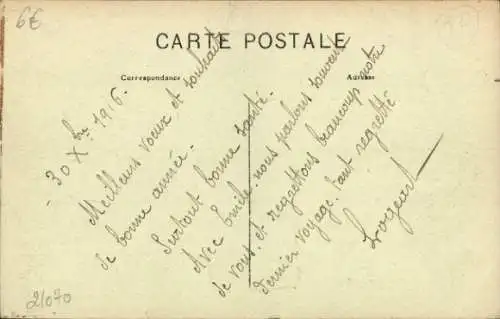 6€
CARTE POSTALE
Correspondance
Adresse
30 Xbre 1916.
Meilleurs voeux et souhaits
de bonne année.
Surtout bonne santé.
Avec Emile, nous parlons souvent
de vous, et regrettons beaucoup notre
dernier voyage, tant regretté
21070